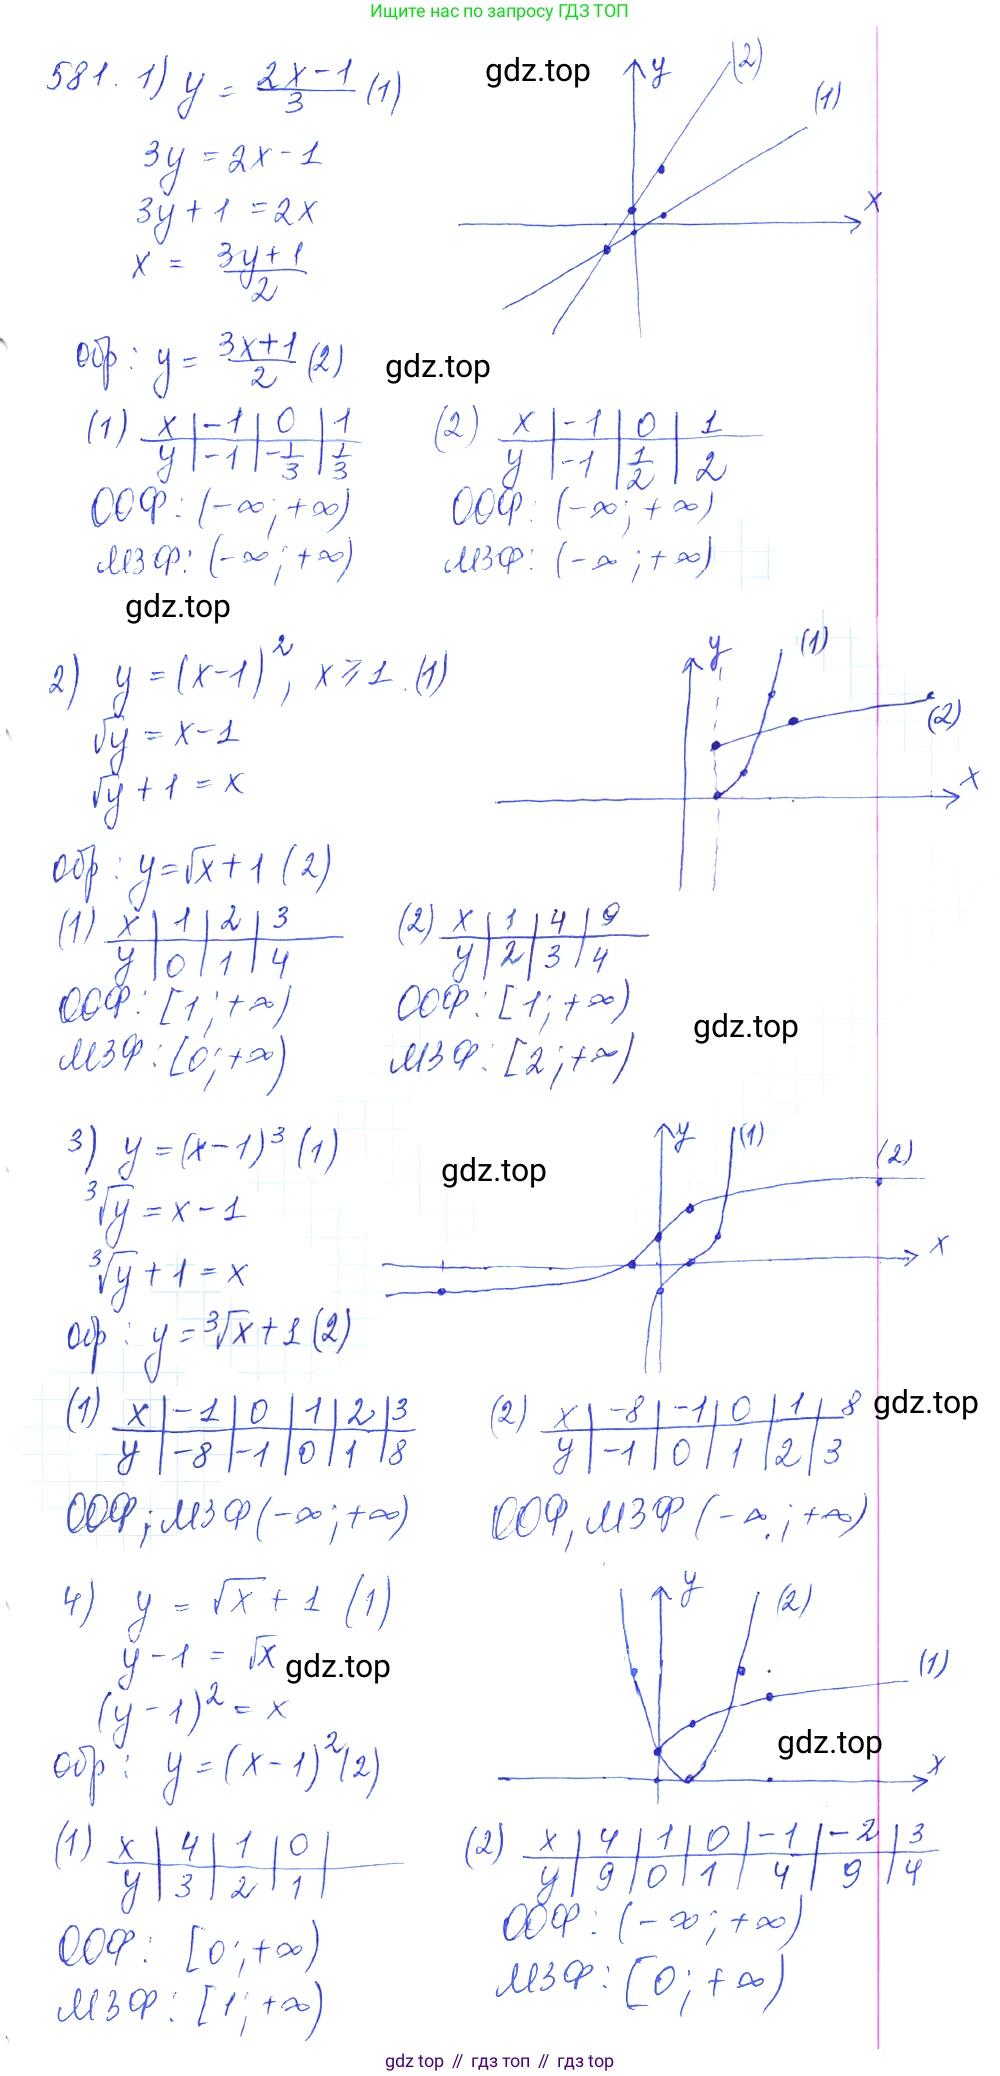 Ищите нас по запросу ГДЗ ТОП
581. 1) y = (2x-1)/3 (1)
3y = 2x-1
3y+1 = 2x
x = (3y+1)/2
обр: y = (3x+1)/2 (2)
gdz.top
y
(2)
(1)
x
gdz.top
(1) x | -1 | 0 | 1
y | -1 | -1/3 | 1/3
ООФ: (-∞; +∞)
МЗФ: (-∞; +∞)
(2) x | -1 | 0 | 1
y | -1 | 1/2 | 2
ООФ: (-∞; +∞)
МЗФ: (-∞; +∞)
gdz.top
2) y = (x-1)², x ⩾ 1 (1)
√y = x-1
√y + 1 = x
обр: y = √x + 1 (2)
y
(1)
(2)
x
(1) x | 1 | 2 | 3
y | 0 | 1 | 4
ООФ: [1; +∞)
МЗФ: [0; +∞)
(2) x | 1 | 4 | 9
y | 2 | 3 | 4
ООФ: [1; +∞)
МЗФ: [2; +∞)
gdz.top
3) y = (x-1)³ (1)
³√y = x-1
³√y + 1 = x
обр: y = ³√x + 1 (2)
gdz.top
y
(1)
(2)
x
(1) x | -1 | 0 | 1 | 2 | 3
y | -8 | -1 | 0 | 1 | 8
ООФ; МЗФ (-∞; +∞)
(2) x | -8 | -1 | 0 | 1 | 8
y | -1 | 0 | 1 | 2 | 3
ООФ, МЗФ (-∞; +∞)
gdz.top
4) y = √x + 1 (1)
y-1 = √x
(y-1)² = x
обр: y = (x-1)² (2)
gdz.top
y
(2)
(1)
gdz.top
x
(1) x | 4 | 1 | 0 |
y | 3 | 2 | 1 |
ООФ: [0; +∞)
МЗФ: [1; +∞)
(2) x | 4 | 1 | 0 | -1 | -2 | 3
y | 9 | 0 | 1 | 4 | 9 | 4
ООФ: (-∞; +∞)
МЗФ: [0; +∞)
gdz top // гдз топ // гдз top